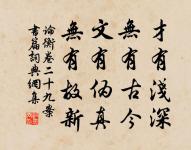 才有淺深
無有古今
文有偽真
無有故新
論衡卷二十九案
書篇詞典網集